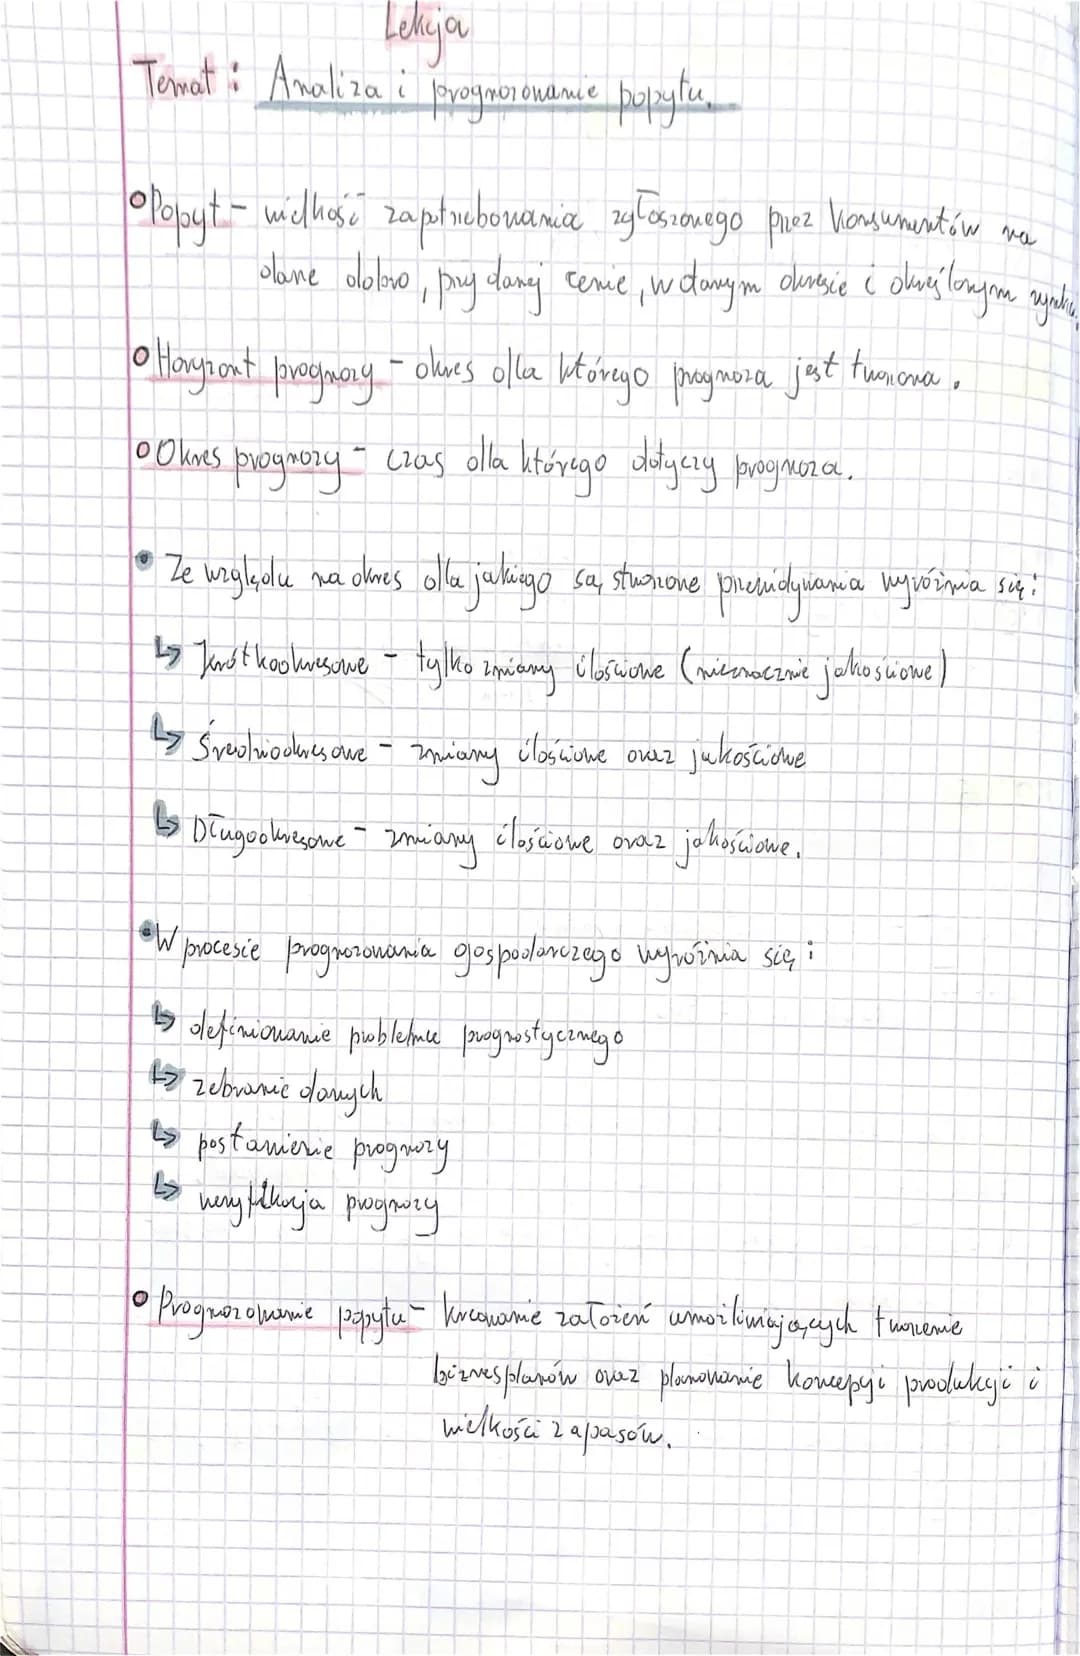 Lekcja
Temat: Analiza i prognozowanie popytu.
Popyt - wielkość zapotrzebowania zgłoszonego przez konsumentów na
dane dobro, przy danej cenie, w danym okresie i określonym rynku.
Horyzont prognozy - okres dla którego prognoza jest tworzona.
Okres prognozy - czas dla którego dotyczy prognoza.
Ze względu na okres dla jakiego są stworzone przewidywania wyróżnia się:
↳ Krótkookresowe - tylko zmiany ilościowe (nieznacznie jakościowe)
↳ Średniookresowe - zmiany ilościowe oraz jakościowe
↳ Długookresowe - zmiany ilościowe oraz jakościowe.
W procesie prognozowania gospodarczego wyróżnia się:
↳ definiowanie problemu prognostycznego
↳ zebranie danych
↳ postawienie prognozy
↳ weryfikacja prognozy
Prognozowanie popytu - kreowanie założeń umożliwiających tworzenie
biznesplanów oraz planowanie koncepcji produkcji i
wielkości zapasów.